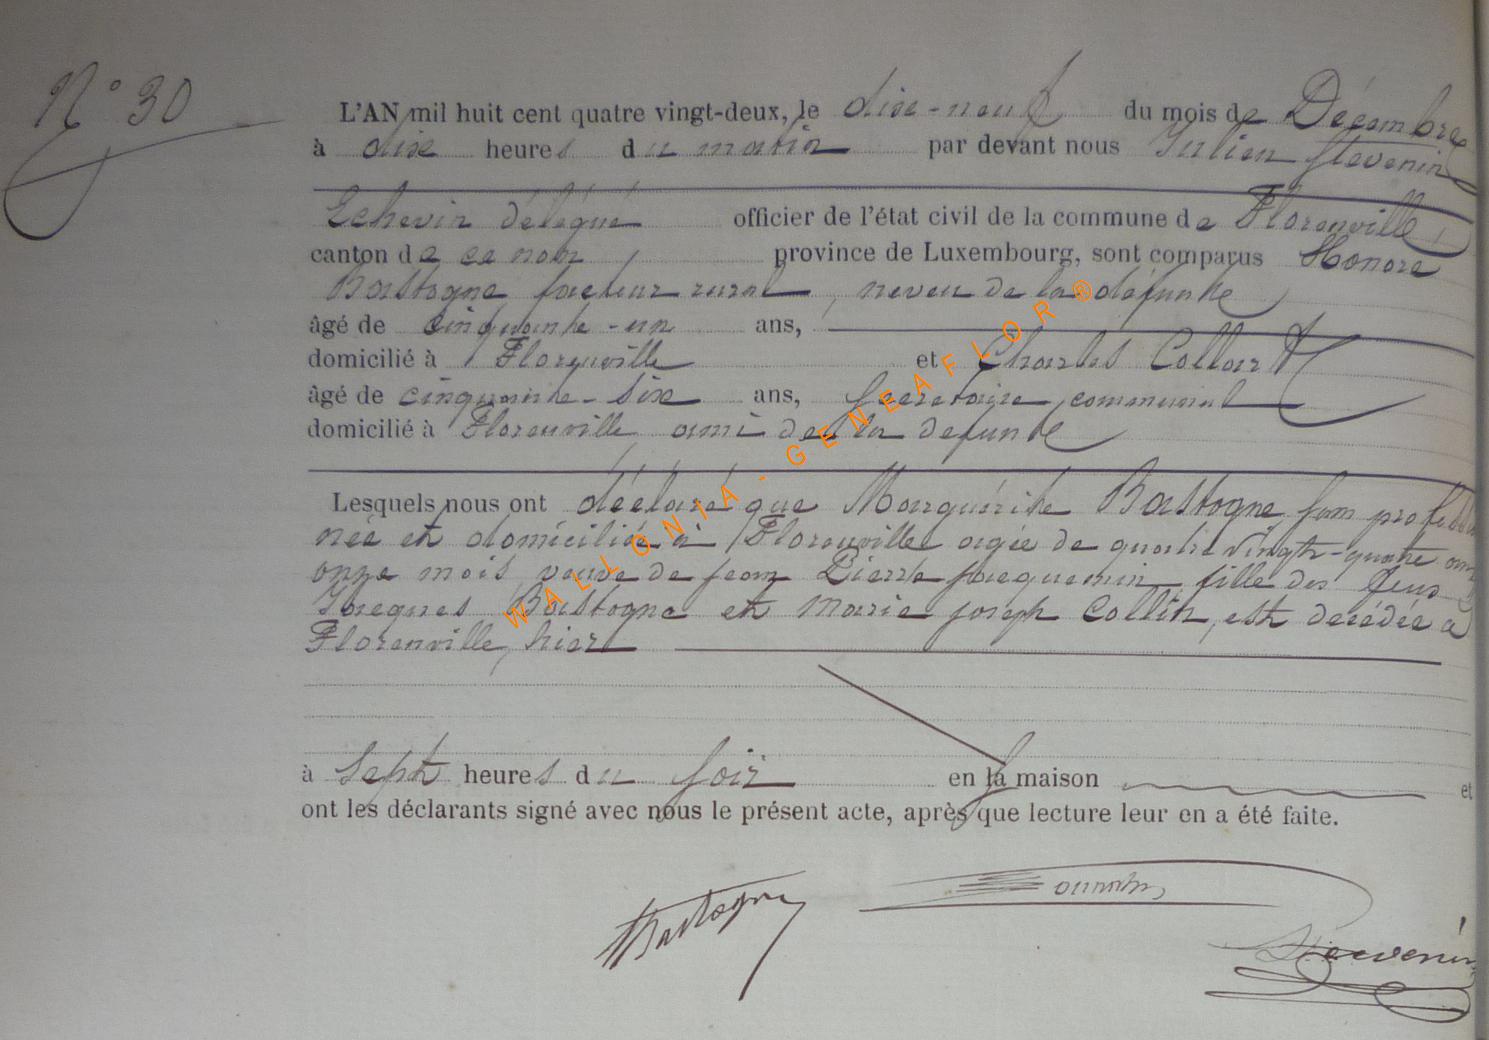 N° 30
L'AN mil huit cent quatre vingt-deux, le dixe-neuf du mois de Décembre
à dixe heures du matin par devant nous Julien Stevenin
Echevin délégué officier de l'état civil de la commune de Florenville,
canton de ce nom, province de Luxembourg, sont comparus Honoré
Bastogne facteur rural, neveu de la défunte
âgé de cinquante-un ans,
domicilié à Florenville et Charles Collart
âgé de cinquante-six ans, secretaire communal
domicilié à Florenville, ami de la defunte
Lesquels nous ont déclaré que Marguérite Bastogne, sans profession
née et domiciliée à Florenville agée de quatre vingt-quatre ans
onze mois, veuve de Jean Pierre Jacquemin, fille des feus
Jacques Bastogne et Marie Joseph Collin, est décédée à
Florenville, hier
à sept heures du soir en la maison et
ont les déclarants signé avec nous le présent acte, après que lecture leur en a été faite.
Bastogne
Stevenin
WALLONIA - GENEAFLOR ®